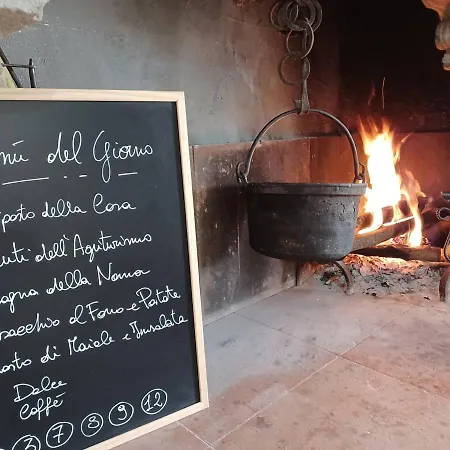 nù del Giorno
iposto della Casa
uti dell'Agriturismo
agna della Nonna
bacchio al Forno e Patate
osto di Maiale e Insalata
Dolce
Caffè
3 7 8 9 12